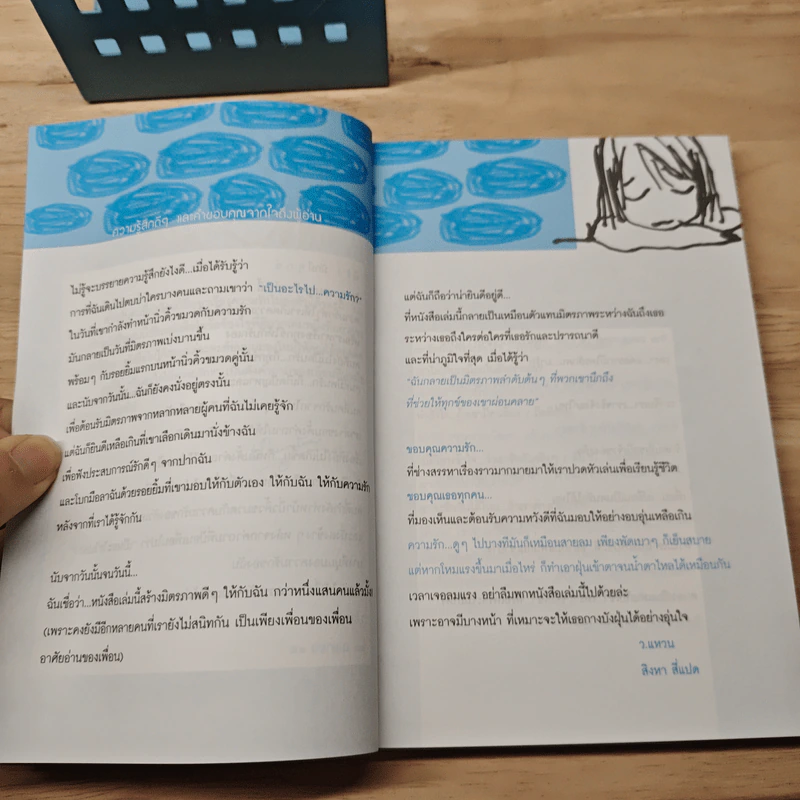 ความรู้สึกดีๆ และคำขอบคุณจากใจถึงผู้อ่าน
ไม่รู้จะบรรยายความรู้สึกยังไงดี...เมื่อได้รับรู้ว่า
การที่ฉันเดินไปตบบ่าใครบางคนและถามเขาว่า "เป็นอะไรไป...ความรัก?"
ในวันที่เขากำลังทำหน้านิ่วคิ้วขมวดกับความรัก
มันกลายเป็นวันที่มิตรภาพเบ่งบานขึ้น
พร้อมๆ กับรอยยิ้มแรกบนหน้านิ่วคิ้วขมวดคู่นั้น
และนับจากวันนั้น...ฉันก็ยังคงนั่งอยู่ตรงนั้น
เพื่อต้อนรับมิตรภาพจากหลากหลายผู้คนที่ฉันไม่เคยรู้จัก
แต่ฉันก็ยินดีเหลือเกินที่เขาเลือกเดินมานั่งข้างฉัน
เพื่อฟังประสบการณ์รักดีๆ จากปากฉัน
และโบกมือลาฉันด้วยรอยยิ้มที่เขามอบให้กับตัวเอง ให้กับฉัน ให้กับความรัก
หลังจากที่เราได้รู้จักกัน
นับจากวันนั้นจนวันนี้...
ฉันเชื่อว่า...หนังสือเล่มนี้สร้างมิตรภาพดีๆ ให้กับฉัน กว่าหนึ่งแสนคนแล้วมั้ง
(เพราะคงยังมีอีกหลายคนที่เรายังไม่สนิทกัน เป็นเพียงเพื่อนของเพื่อน
อาศัยอ่านของเพื่อน)
แต่ฉันก็ถือว่าน่ายินดีอยู่ดี...
ที่หนังสือเล่มนี้กลายเป็นเหมือนตัวแทนมิตรภาพระหว่างฉันถึงเธอ
ระหว่างเธอถึงใครต่อใครที่เธอรักและปรารถนาดี
และที่น่าภูมิใจที่สุด เมื่อได้รู้ว่า
"ฉันกลายเป็นมิตรภาพลำดับต้นๆ ที่พวกเขานึกถึง
ที่ช่วยให้ทุกข์ของเขาผ่อนคลาย"
ขอบคุณความรัก...
ที่ช่างสรรหาเรื่องราวมากมายมาให้เราปวดหัวเล่นเพื่อเรียนรู้ชีวิต
ขอบคุณเธอทุกคน...
ที่มองเห็นและต้อนรับความหวังดีที่ฉันมอบให้อย่างอบอุ่นเหลือเกิน
ความรัก...ดูๆ ไปบางทีมันก็เหมือนสายลม เพียงพัดเบาๆ ก็เย็นสบาย
แต่หากโหมแรงขึ้นมาเมื่อไหร่ ก็ทำเอาฝุ่นเข้าตาจนน้ำตาไหลได้เหมือนกัน
เวลาเจอลมแรง อย่าลืมพกหนังสือเล่มนี้ไปด้วยล่ะ
เพราะอาจมีบางหน้า ที่เหมาะจะให้เธอกางบังฝุ่นได้อย่างอุ่นใจ
ว.แหวน
สิงหา สี่แปด